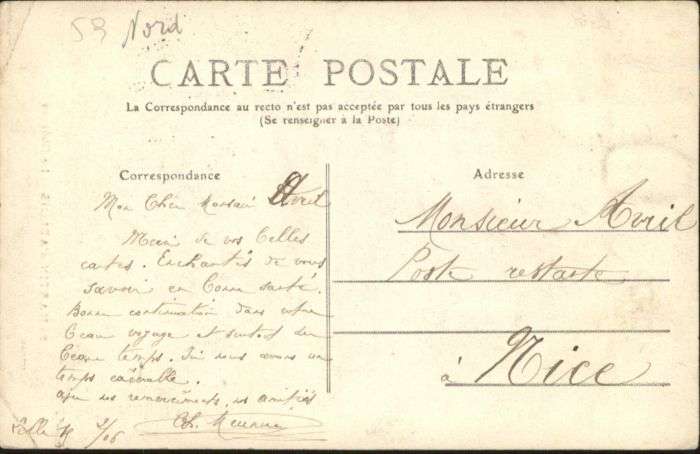 59 Nord
CARTE POSTALE
La Correspondance au recto n'est pas acceptée par tous les pays étrangers
(Se renseigner à la Poste)
Correspondance
Adresse
Mon Cher Monsieur Avril
Merci de vos belles
cartes. Enchantés de vous
savoir en bonne santé.
Bonne continuation dans votre
beau voyage et surtout du
beau temps. Ici nous avons un
temps
nos remerciements, nos amitiés
Ch. Meunier
Monsieur Avril
Poste restante
à Nice